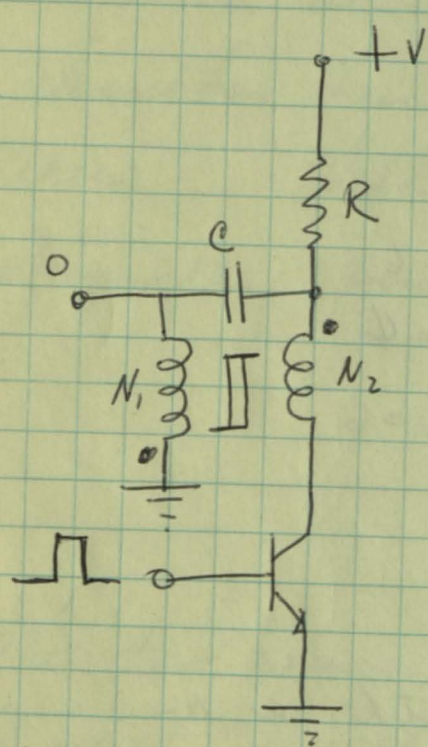 +V
R
C
O
N1
N2